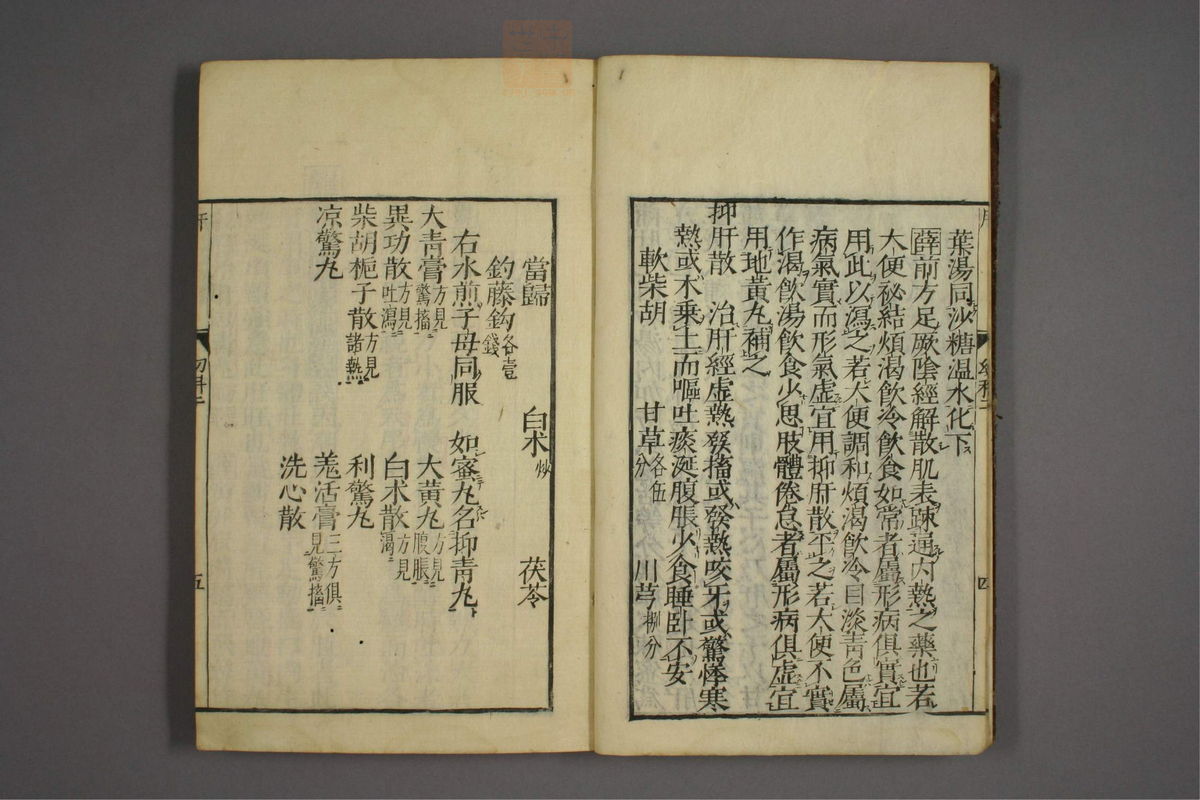 葉湯同沙糖温水化下
薛前方足厥陰經解散肌表踈通内熱之藥也若
大便祕結煩渴飲冷飲食如常者屬形病俱實宜
用此以瀉之若大便調和煩渴飲冷目淡青色屬
病氣實而形氣虚宜用抑肝散平之若大便不實
作渴飲湯飲食少思肢體倦怠者屬形病俱虚宜
用地黄丸補之
抑肝散 治肝經虚熱發搐或發熱咬牙或驚悸寒
熱或木乗土而嘔吐痰涎腹脹少食睡卧不安
軟柴胡 甘草各伍分 川芎捌分
四
當歸 白朮炒 茯苓
釣藤鈎各壹錢
右水煎子母同服 如蜜丸名抑青丸
大青膏方見驚搐 大黄丸方見腹脹
異功散方見吐瀉 白朮散方見渴
柴胡梔子散方見諸熱 利驚丸
凉驚丸 羗活膏三方俱見驚搐
洗心散
五